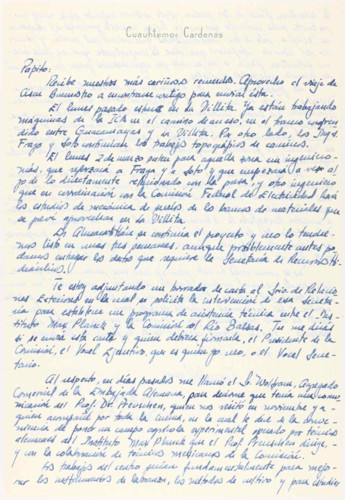 Cuauhtémoc Cárdenas
Papito:
Recibe nuestros más cariñosos recuerdos. Aprovecho el viaje de
César a encontrarse contigo para enviar ésta.
El lunes pasado estuve en La Villita. Ya están trabajando
máquinas de la ICA en el camino de acceso, en el tramo compren-
dido entre Guacamayas y La Villita. Por otro lado, los Ings.
Fraga y Soto continúan los trabajos topográficos de caminos.
El lunes 2 de marzo saldrá para aquella zona un ingeniero
más, que reforzará a Fraga y a Soto y que empezará a ver al-
go de lo directamente relacionado con la presa, y otro ingeniero
que en coordinación con la Comisión Federal de Electricidad hará
los estudios de mecánica de suelos de los bancos de materiales que
se prevé aprovechar en La Villita.
De Amacuzac se continúa el proyecto y no lo tendre-
mos listo en unas tres semanas, aunque probablemente antes po-
damos entregar los datos que requiere la Secretaría de Recursos Hi-
dráulicos.
Te estoy adjuntando un borrador de carta al Srio. de Relacio-
nes Exteriores en la cual se solicita la intervención de esa Secreta-
ría para establecer un programa de asistencia técnica entre el Ins-
tituto Max Planck y la Comisión del Río Balsas. Tú me dirás
si se envía esta carta y quien debiera firmarla, el Presidente de la
Comisión, el Vocal Ejecutivo, que es quien yo creo, o el Vocal Secre-
tario.
Al respecto, en días pasados me llamó el Sr. Wolfram, Agregado
Comercial de la Embajada Alemana, para decirme que tenía una comu-
nicación del Prof. Dr. Preuschen, quien nos visitó en noviembre y a
quien acompañé por toda la cuenca, en la cual le dice de la conve-
niencia de poner un campo agrícola experimental operado por técnicos
alemanes del Instituto Max Planck que el Prof. Preuschen dirige
y con la colaboración de técnicos mexicanos de la Comisión.
Los trabajos del centro serían fundamentalmente para mejo-
rar los instrumentos de labranza, los métodos de cultivo y para